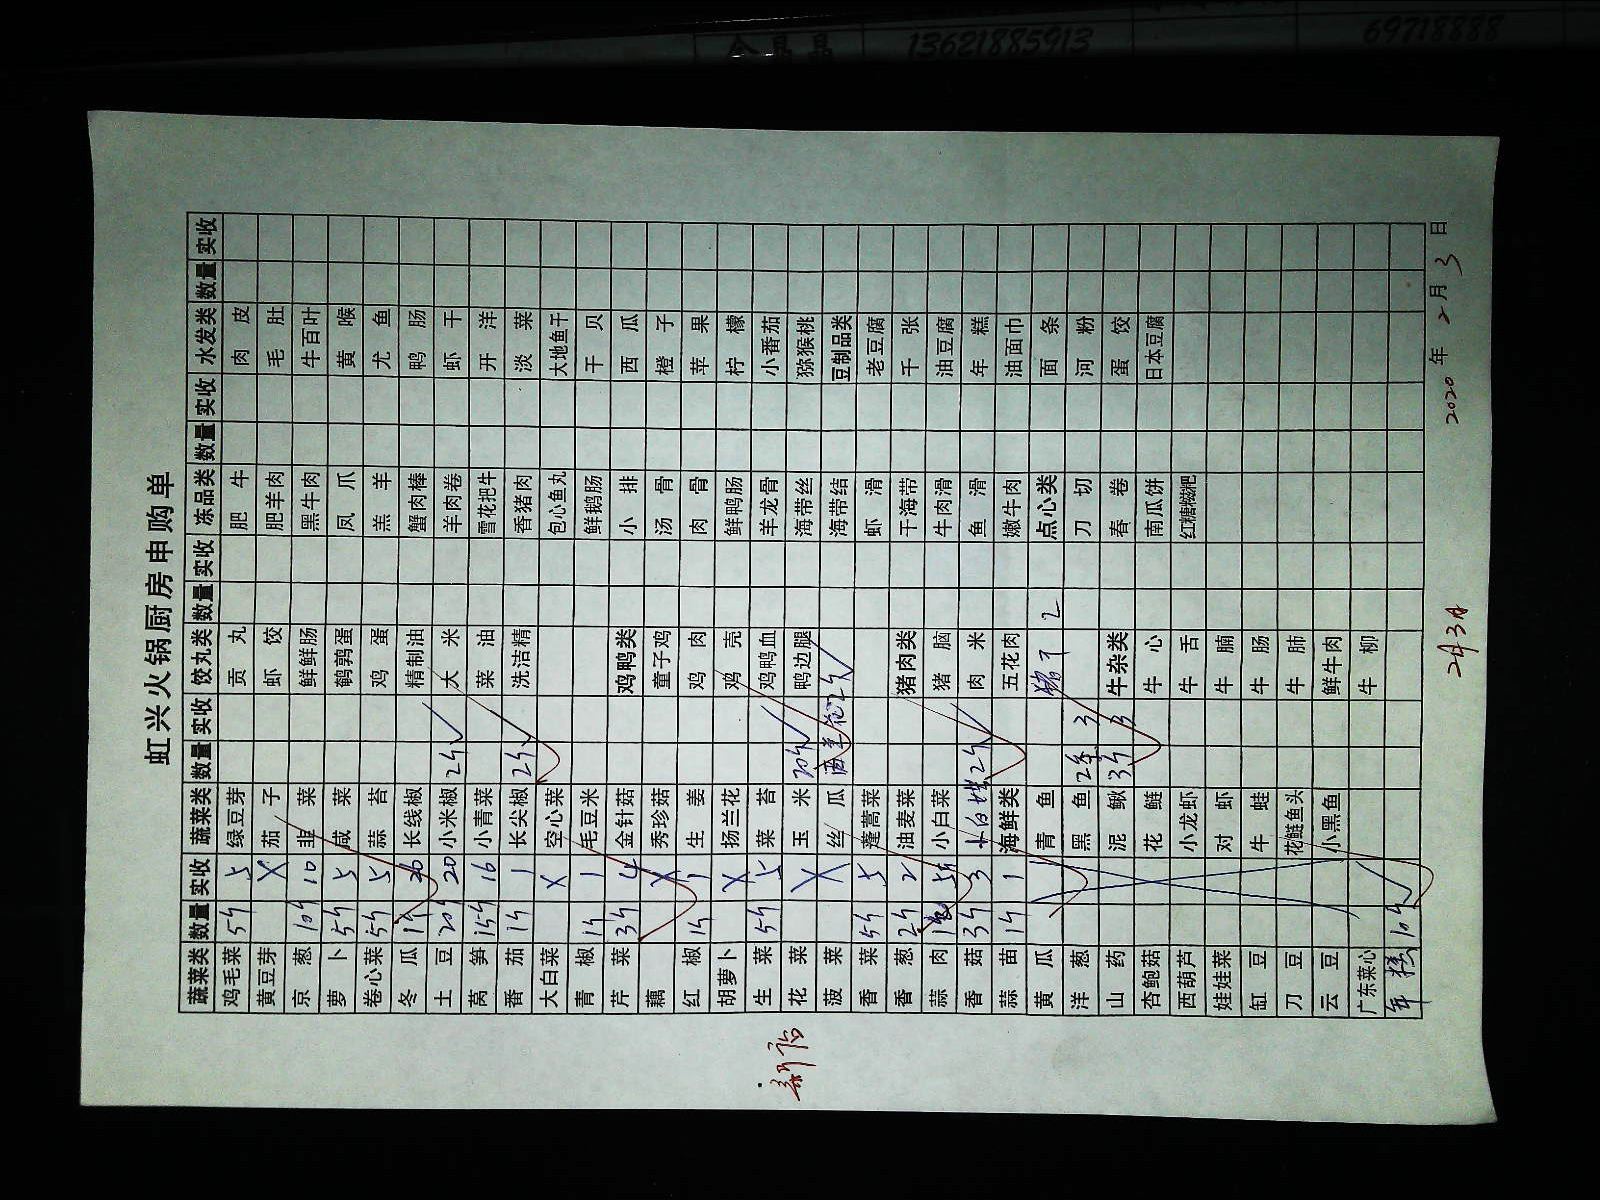 13621885913
69718888
虹兴火锅厨房申购单
蔬菜类 数量 实收 蔬菜类 数量 实收 饺丸类 数量 实收 冻品类 数量 实收 水发类 数量 实收
鸡毛菜 5斤 5 绿豆芽 贡丸 肥牛 肉皮
黄豆芽 X 茄子 虾饺 肥羊肉 毛肚
京葱 10斤 10 韭菜 鲜鲜肠 黑牛肉 牛百叶
萝卜 5斤 5 咸菜 鹌鹑蛋 凤爪 黄喉
卷心菜 5斤 5 蒜苔 鸡蛋 羔羊 尤鱼
冬瓜 长线椒 精制油 蟹肉棒 鸭肠
土豆 20斤 20 小米椒 2斤 大米 羊肉卷 虾干
莴笋 15斤 16 小青菜 菜油 雪花把牛 开洋
番茄 1斤 1 长尖椒 2斤 洗洁精 香猪肉 淡菜
大白菜 X 空心菜 包心鱼丸 大地鱼干
青椒 1斤 1 毛豆米 鲜鹅肠 干贝
芹菜 3斤 4 金针菇 鸡鸭类 小排 西瓜
藕 X 秀珍菇 童子鸡 汤骨 橙子
红椒 1斤 1 生姜 鸡肉 肉骨 苹果
胡萝卜 X 扬兰花 鸡壳 鲜鸭肠 柠檬
生菜 5斤 5 菜苔 鸡鸭血 羊龙骨 小番茄
花菜 X 玉米 鸭边腿 海带丝 猕猴桃
菠菜 X 丝瓜 西兰花 海带结 豆制品类
香菜 5斤 5 蓬蒿菜 虾滑 老豆腐
香葱 2斤 2 油麦菜 猪肉类 干海带 千张
蒜肉 小白菜 猪脑 牛肉滑 油豆腐
香菇 3斤 3 2斤 肉米 鱼滑 年糕
蒜苗 1斤 1 海鲜类 五花肉 嫩牛肉 油面巾
黄瓜 青鱼 2 点心类 面条
洋葱 黑鱼 3 刀切 河粉
山药 泥鳅 3斤 3 牛杂类 春卷 蛋饺
杏鲍菇 花鲢 牛心 南瓜饼 日本豆腐
西葫芦 小龙虾 牛舌 红糖糍粑
娃娃菜 对虾 牛腩
缸豆 牛蛙 牛肠
刀豆 花鲢鱼头 牛肺
云豆 小黑鱼 鲜牛肉
广东菜心 牛柳
年糕 10斤
2020年2月3日
2月3日